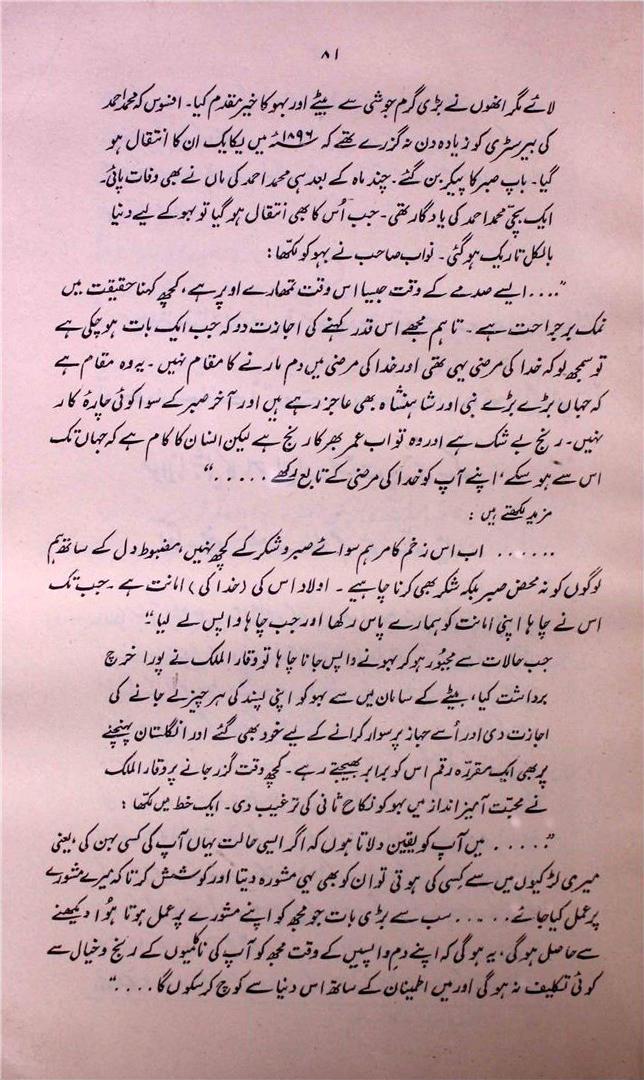 ۸۱
لائے مگر انھوں نے بڑی گرم جوشی سے بیٹے اور بہو کا خیر مقدم کیا۔ افسوس کہ محمد احمد
کی بیرسٹری کو زیادہ دن نہ گزرے تھے کہ ۱۸۹۶ء میں یکایک ان کا انتقال ہو
گیا۔ باپ صبر کا پیکر بن گئے۔ چند ماہ کے بعد ہی محمد احمد کی ماں نے بھی وفات پائی۔
ایک بچی محمد احمد کی یادگار تھی۔ جب اُس کا بھی انتقال ہو گیا تو بہو کے لیے دنیا
بالکل تاریک ہو گئی۔ نواب صاحب نے بہو کو لکھا:
”.... ایسے صدمے کے وقت جیسا اس وقت تمھارے اوپر ہے، کچھ کہنا حقیقت میں
نمک بر جراحت ہے۔ تاہم مجھے اس قدر کہنے کی اجازت دو کہ جب ایک بات ہو چکی ہے
تو سمجھ لو کہ خدا کی مرضی یہی تھی اور خدا کی مرضی میں دم مارنے کا مقام نہیں۔ یہ وہ مقام ہے
کہ جہاں بڑے بڑے نبی اور شاہنشاہ بھی عاجز رہے ہیں اور آخر صبر کے سوا کوئی چارۂ کار
نہیں۔ رنج بے شک ہے اور وہ تو اب عمر بھر کا رنج ہے لیکن انسان کا کام ہے کہ جہاں تک
اس سے ہو سکے، اپنے آپ کو خدا کی مرضی کے تابع رکھے .....“
مزید لکھتے ہیں:
...... اب اس زخم کا مرہم سوائے صبر و شکر کے کچھ نہیں، مضبوط دل کے ساتھ ہم
لوگوں کو نہ محض صبر بلکہ شکر بھی کرنا چاہیے۔ اولاد اس کی (خدا کی) امانت ہے۔ جب تک
اس نے چاہا اپنی امانت کو ہمارے پاس رکھا اور جب چاہا واپس لے لیا“
جب حالات سے مجبور ہو کر بہو نے واپس جانا چاہا تو وقار الملک نے پورا خرچ
برداشت کیا، بیٹے کے سامان میں سے بہو کو اپنی پسند کی ہر چیز لے جانے کی
اجازت دی اور اُسے جہاز پر سوار کرانے کے لیے خود بھی گئے اور انگلستان پہنچنے
پر بھی ایک مقررہ رقم اس کو برابر بھیجتے رہے۔ کچھ وقت گزر جانے پر وقار الملک
نے محبّت آمیز انداز میں بہو کو نکاح ثانی کی ترغیب دی۔ ایک خط میں لکھا:
”..... میں آپ کو یقین دلاتا ہوں کہ اگر ایسی حالت یہاں آپ کی کسی بہن کی، یعنی
میری لڑکیوں میں سے کِسی کی ہوتی تو ان کو بھی یہی مشورہ دیتا اور کوشش کرتا کہ میرے مشورے
پر عمل کیا جائے ...... سب سے بڑی بات جو مجھ کو اپنے مشورے پر عمل ہوتا ہُوا دیکھنے
سے حاصل ہو گی، یہ ہو گی کہ اپنے دمِ واپسیں کے وقت مجھ کو آپ کی ناکامیوں کے رنج و خیال سے
کوئی تکلیف نہ ہو گی اور میں اطمینان کے ساتھ اس دنیا سے کوچ کر سکوں گا ....“